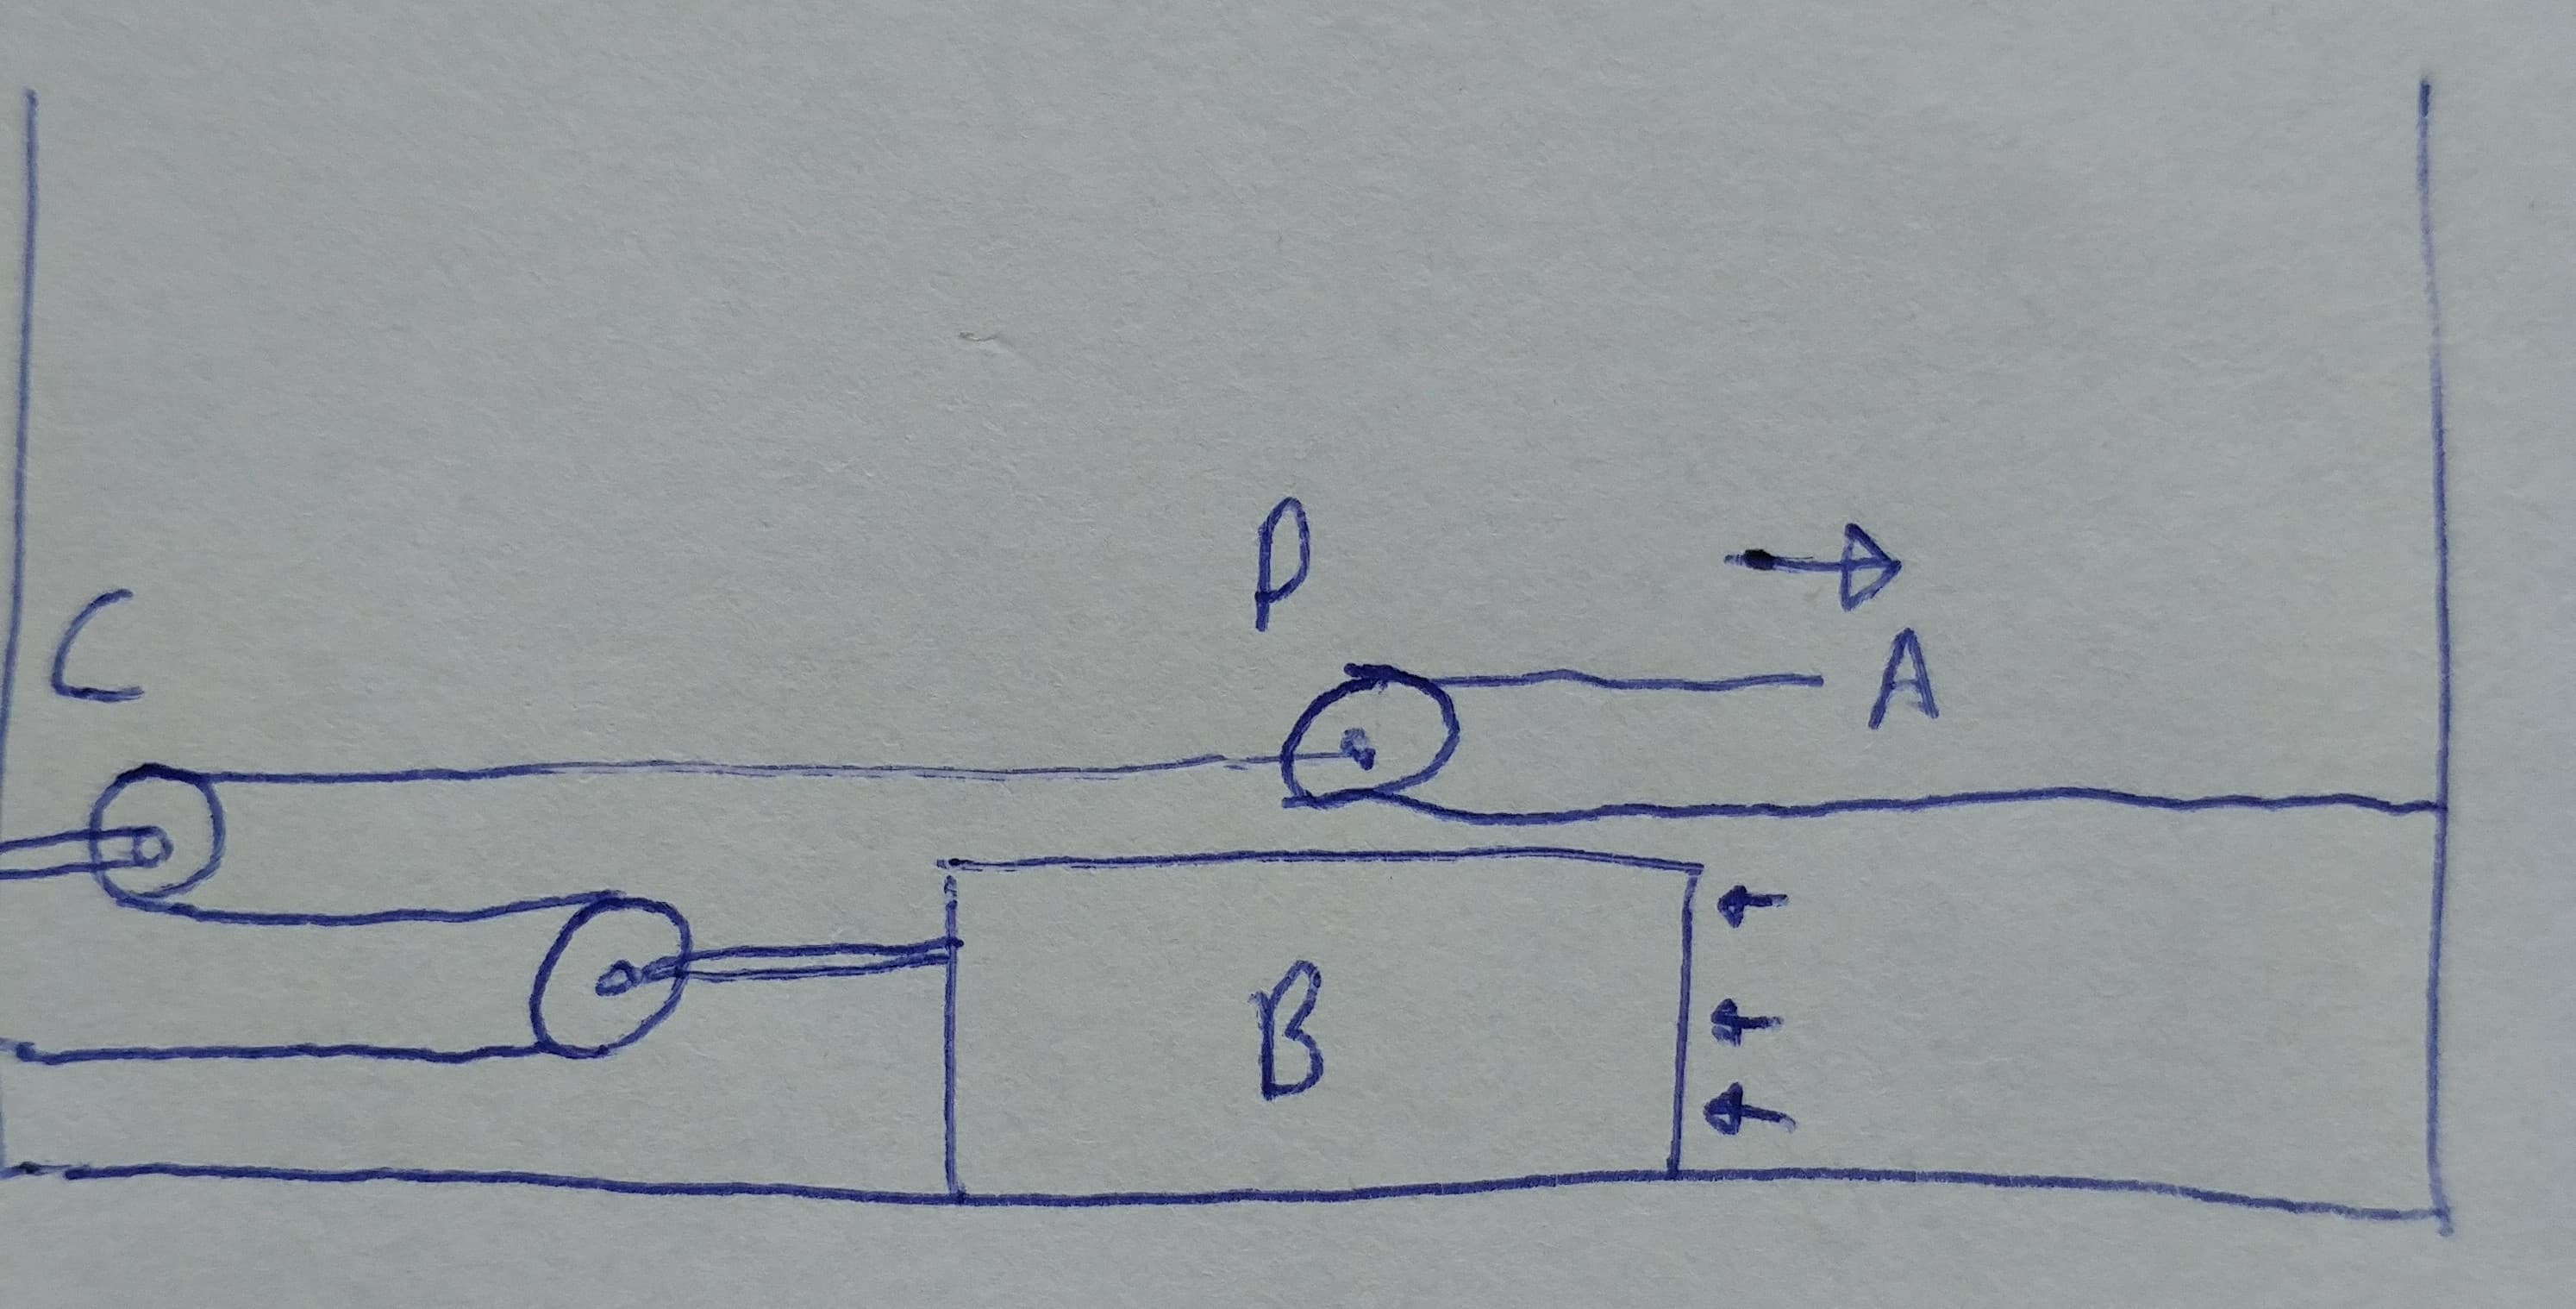 P
C
A
B